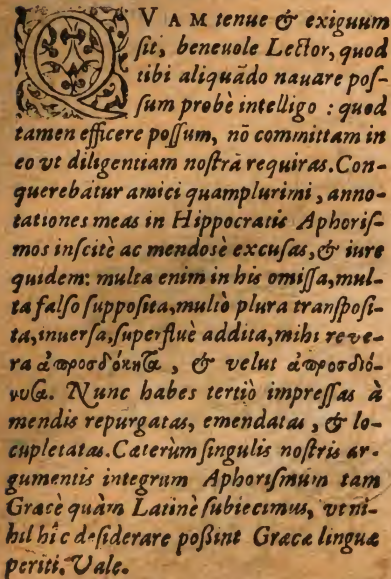 QVAM tenue & exiguum
sit, beneuole Lector, quod
tibi aliquãdo nauare pos-
sum probè intelligo : quod
tamen efficere possum, nõ committam in
eo vt diligentiam nostrã requiras. Con-
querebãtur amici quamplurimi, anno-
tationes meas in Hippocratis Aphoris-
mos inscitè ac mendosè excusas, & iure
quidem: multa enim in his omissa, mul-
ta falso supposita, multò plura transposi-
ta, inuersa, superfluè addita, mihi reve-
ra ἀπροσδόκητα, & velut ἀπροσδιό-
νυσα. Nunc habes tertiò impressas à
mendis repurgatas, emendatas, & lo-
cupletatas. Cæterùm singulis nostris ar-
gumentis integrum Aphorismum tam
Græcè quàm Latinè subiecimus, vt ni-
hil hîc desiderare poßint Græcæ linguæ
periti. Vale.